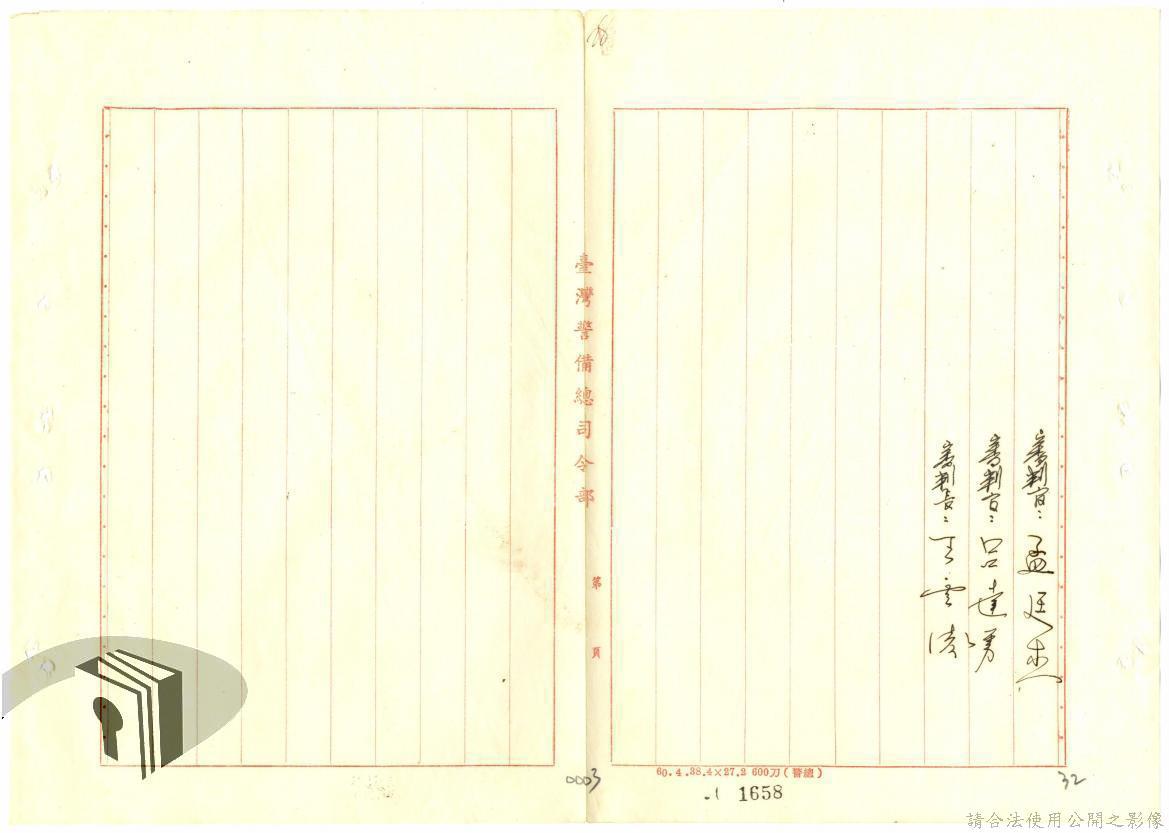 審判官：孟廷杰
審判官：呂達勇
審判長：王雲濤
臺灣警備總司令部
第 頁
60.4.38.4×27.2 600刀(警總)
1658
32
0003
請合法使用公開之影像